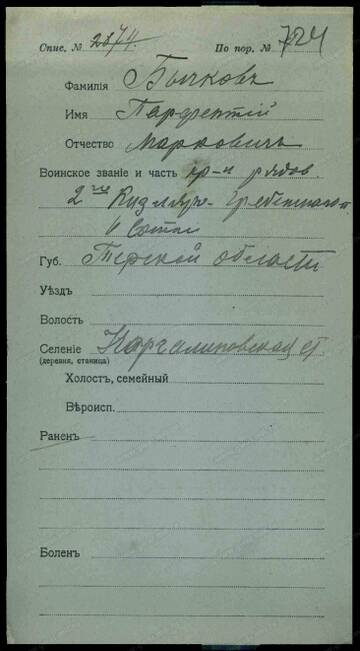 Спис. № 2874. По пор. № 724
Фамилія Бычковъ
Имя Парфентій
Отчество Марковичъ
Воинское званіе и часть рядов.
2го Кизляро-Гребенского
сотни
Губ. Терской области
Уѣздъ
Волость
Селеніе Каргалиновской ст.
(деревня, станица)
Холостъ, семейный
Вѣроисп.
Раненъ
Боленъ